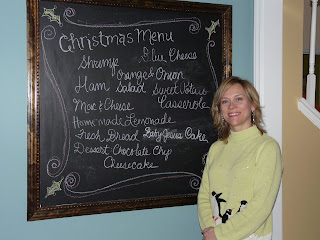 Christmas Menu
Shrimp Blue Cheese
Orange & Onion
Ham Salad Sweet Potato
Mac & Cheese Casserole
Homemade Lemonade
Fresh Bread Baby Jesus Cake
Dessert Chocolate Chip
Cheesecake